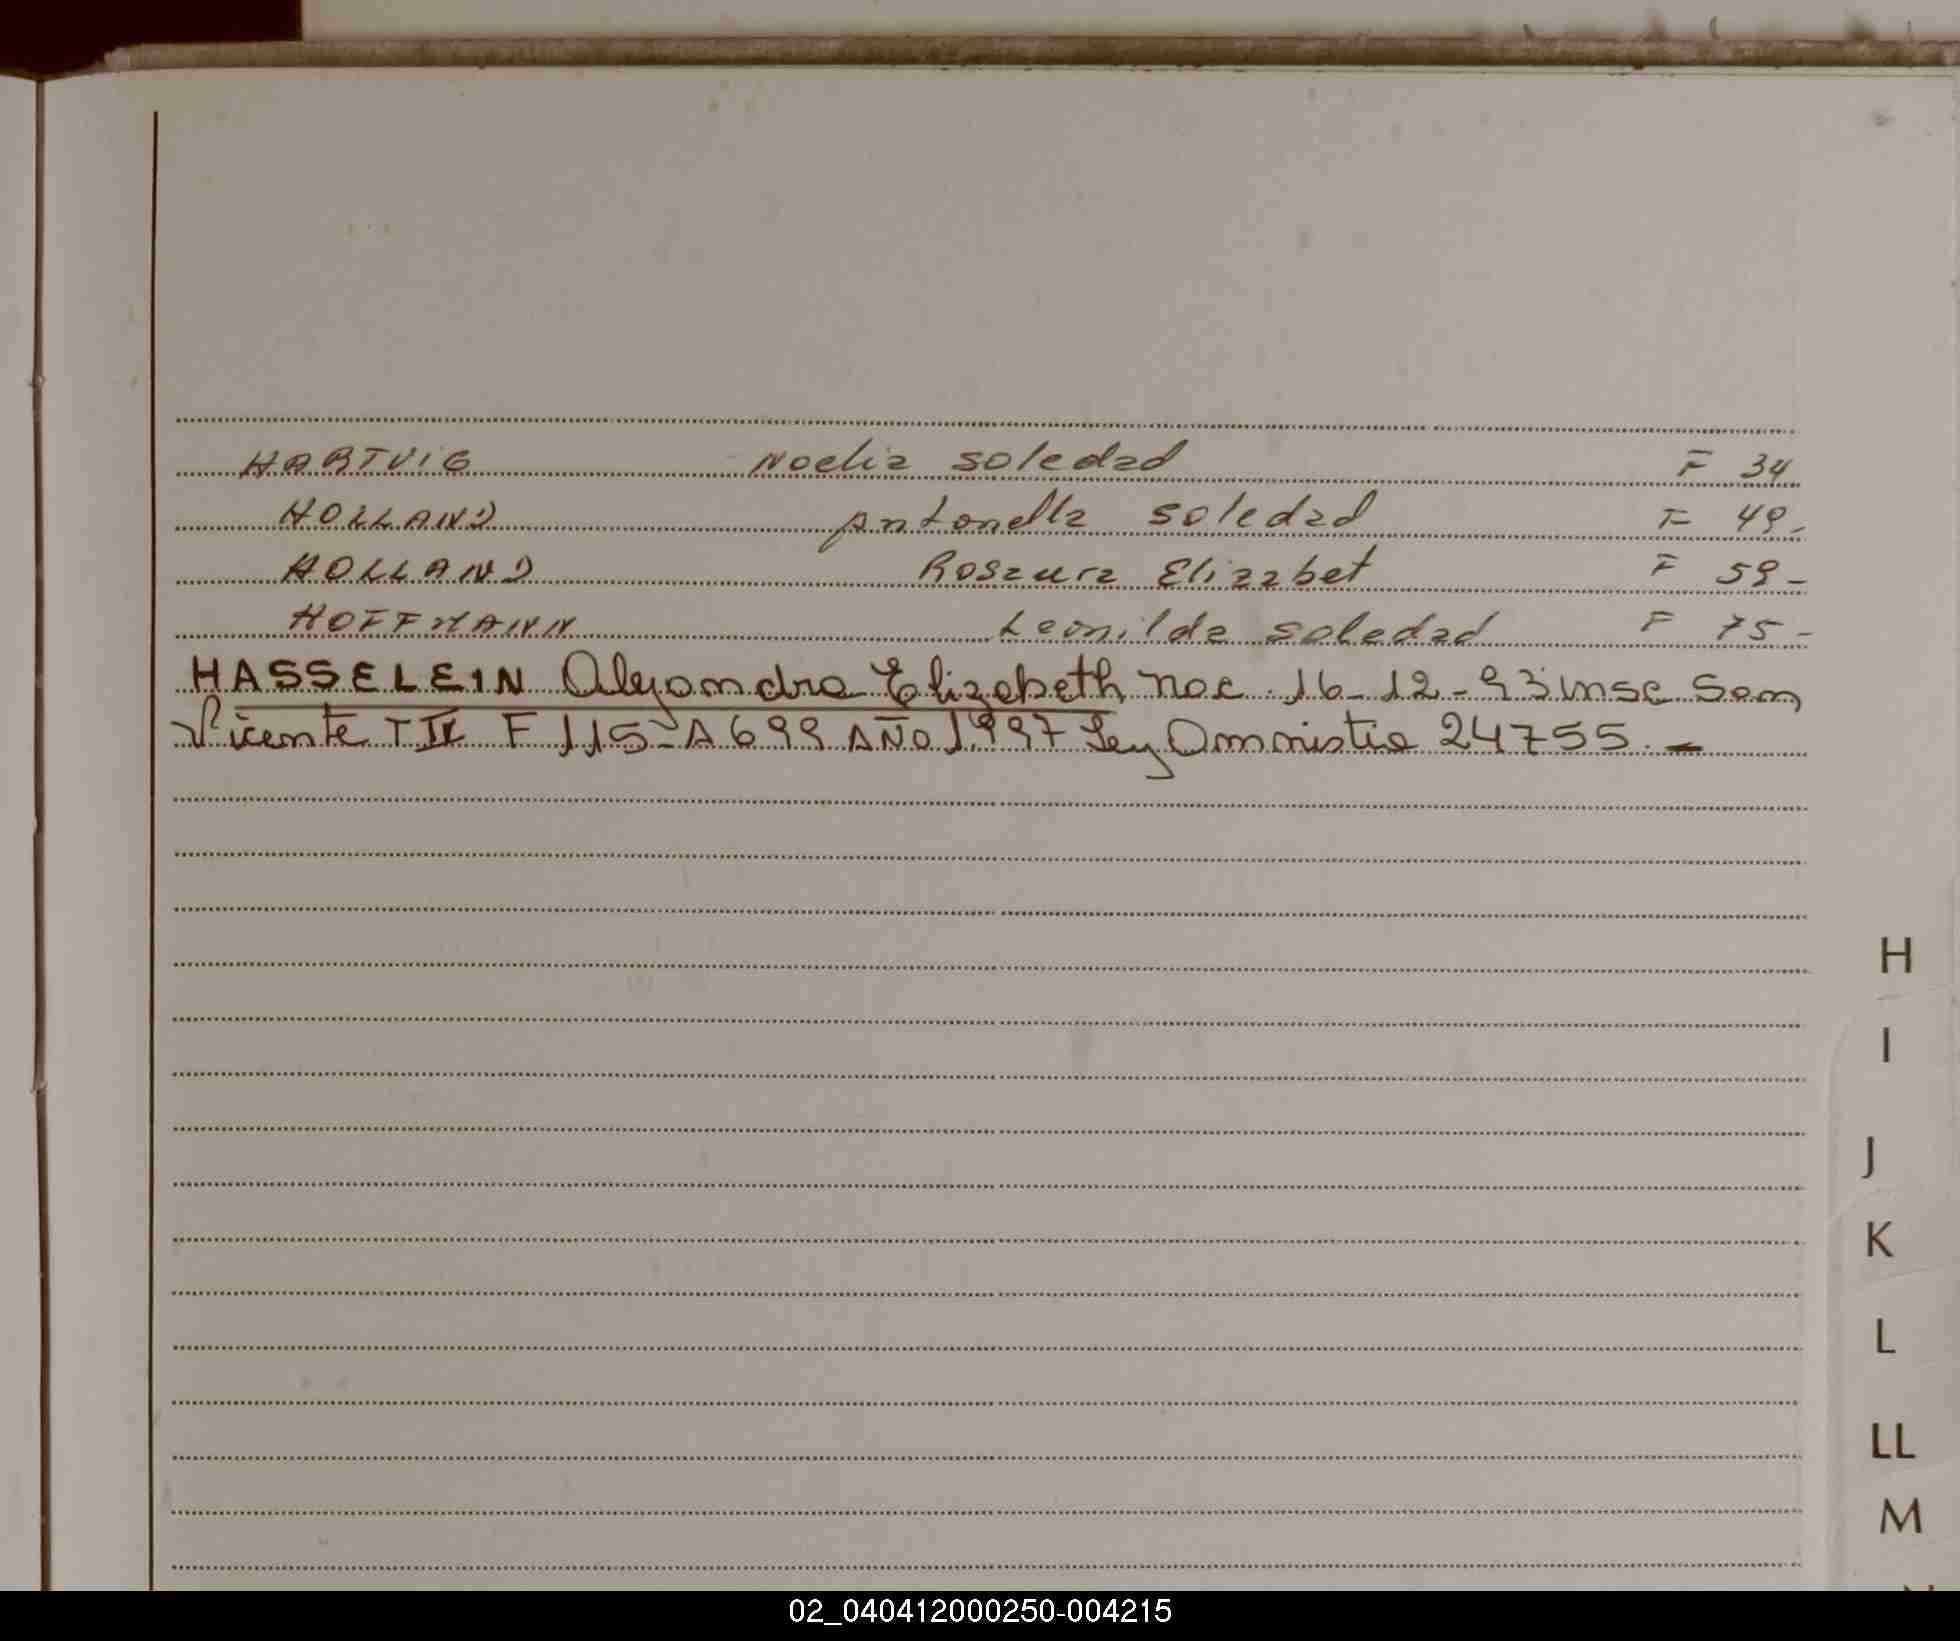 HARTVIG Noelia Soledad F 34
HOLLAND Antonella Soledad F 49-
HOLLAND Rosaura Elizabet F 59-
HOFFMANN Leonilda Soledad F 75-
HASSELEIN Alejandra Elizabeth Nac. 16-12-93 insc San
Vicente T II F 115- A 699 AÑO 1997 Ley Amnistia 24755.-
H
I
J
K
L
LL
M
02_040412000250-004215